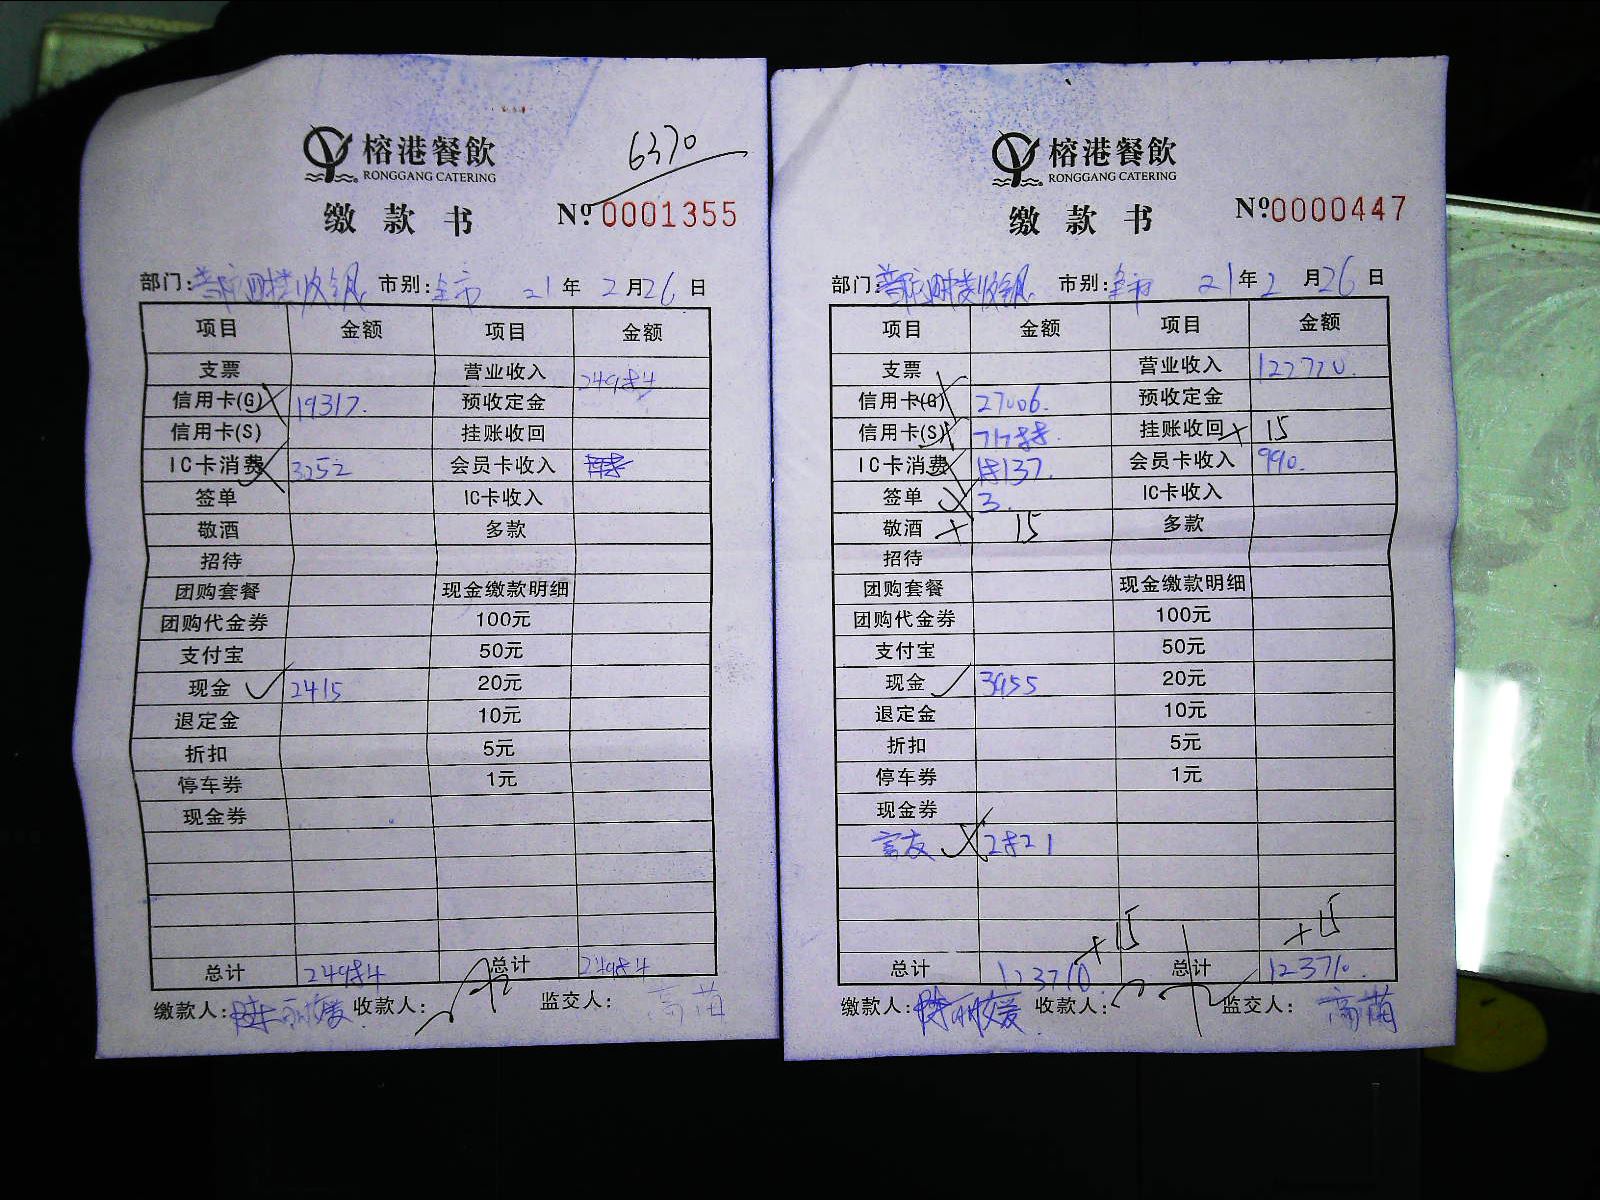 榕港餐飲
RONGGANG CATERING
6370
缴款书
№ 0001355
部门: 四楼收银 市别: 全市 21年2月26日
项目 金额 项目 金额
支票 营业收入 24984
信用卡(G) 19317. 预收定金
信用卡(S) 挂账收回
IC卡消费 3252 会员卡收入
签单 IC卡收入
敬酒 多款
招待
团购套餐 现金缴款明细
团购代金券 100元
支付宝 50元
现金 2415 20元
退定金 10元
折扣 5元
停车券 1元
现金券
总计 24984 总计 24984
缴款人: 陈丽媛 收款人: 监交人: 高苗
榕港餐飲
RONGGANG CATERING
缴款书
№ 0000447
部门: 四楼收银 市别: 全市 21年2月26日
项目 金额 项目 金额
支票 营业收入 122720.
信用卡(G) 27006. 预收定金
信用卡(S) 71788. 挂账收回 + 15
IC卡消费 18137. 会员卡收入 990.
签单 3. IC卡收入
敬酒 + 15 多款
招待
团购套餐 现金缴款明细
团购代金券 100元
支付宝 50元
现金 3955 20元
退定金 10元
折扣 5元
停车券 1元
现金券
富友 2821
+15 +15
总计 123710. 总计 123710.
缴款人: 陈丽媛 收款人: 监交人: 高苗